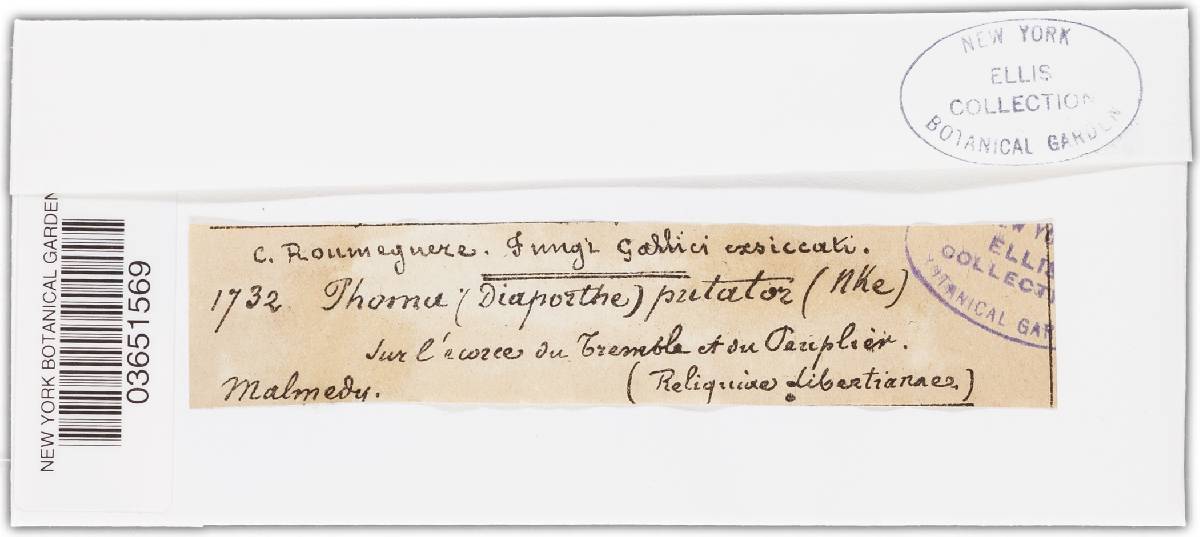 NEW YORK
ELLIS
COLLECTION
BOTANICAL GARDEN
NEW YORK BOTANICAL GARDEN
03651569
C. Roumeguere. Fungi Gallici exsiccati.
1732 Phoma (Diaporthe) putator (Nke)
sur l'écorce du Tremble et du Peuplier.
Malmedy. (Reliquiae Libertianae)
ELLIS
COLLECTI
BOTANICAL GAR